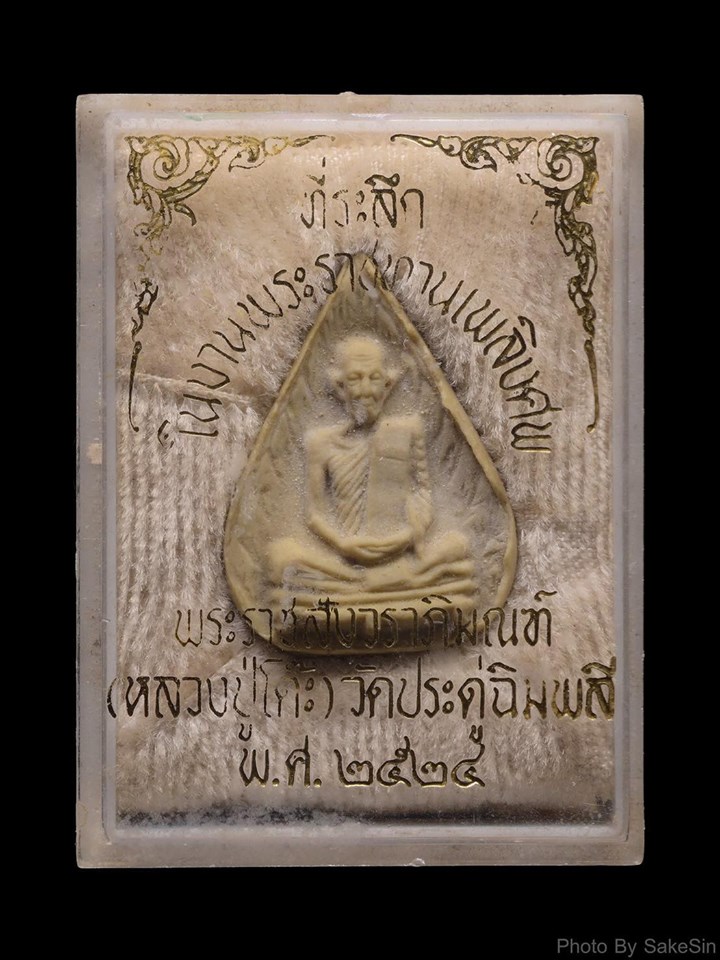 ที่ระลึก
ในงานพระราชทานเพลิงศพ
พระราชสังวราภิมณฑ์
(หลวงปู่โต๊ะ) วัดประดู่ฉิมพลี
พ.ศ. ๒๕๒๔
Photo By SakeSin